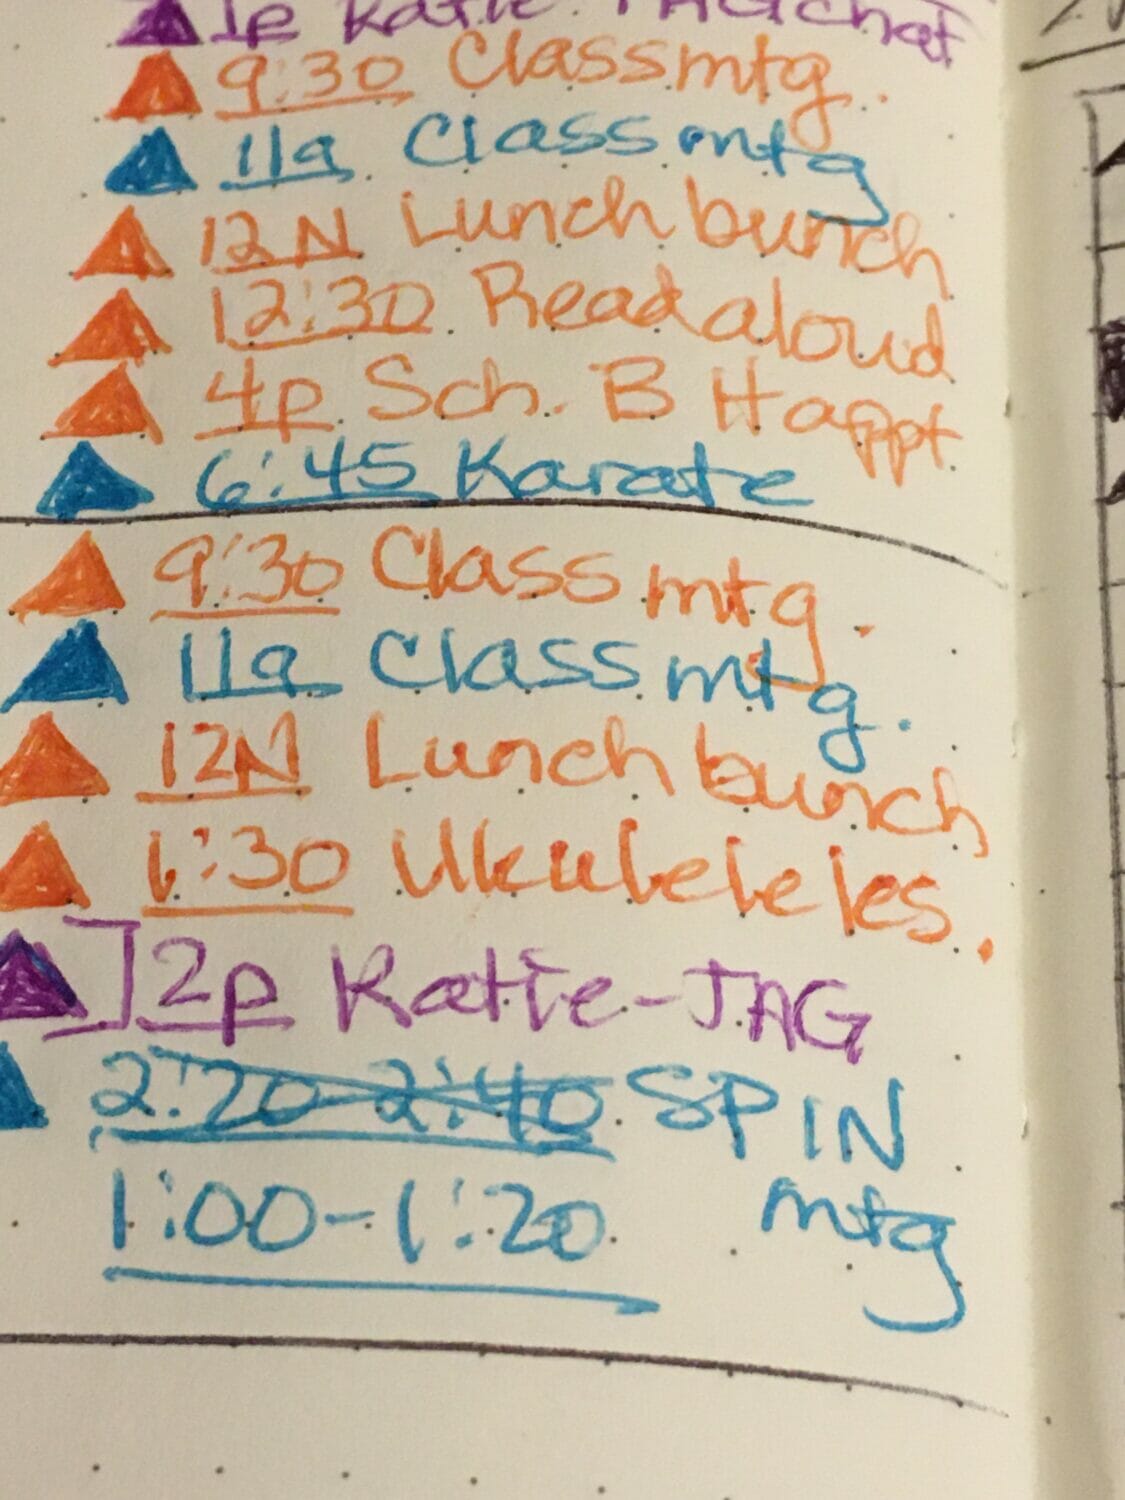 1p Katie TAG chat
9:30 Class mtg.
11a Class mtg
12N Lunch bunch
12:30 Read aloud
4p Sch. B H appt.
6:45 Karate
9:30 Class mtg.
11a Class mtg.
12N Lunch bunch
1:30 Ukuleleles.
2p Katie-TAG
2:20-2:40 SPIN
1:00-1:20 mtg